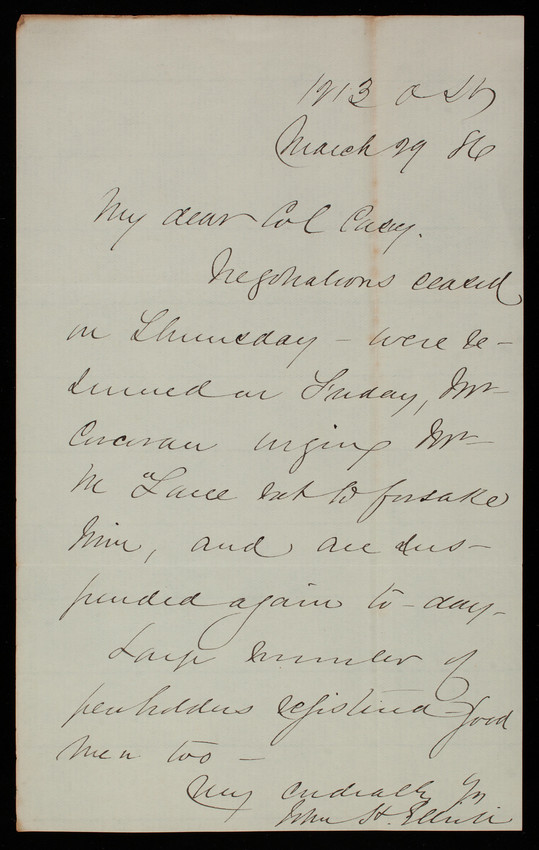 1913 O St
March 29 86
My dear Col Casey.
Negotiations ceased
on Thursday – were re-
sumed on Friday, Mr
Corcoran urging Mr
McLane not to forsake
him, and are sus-
pended again to-day-
Large number of
penholders registered – good
men too –
Very cordially Yrs
John H. Elliott